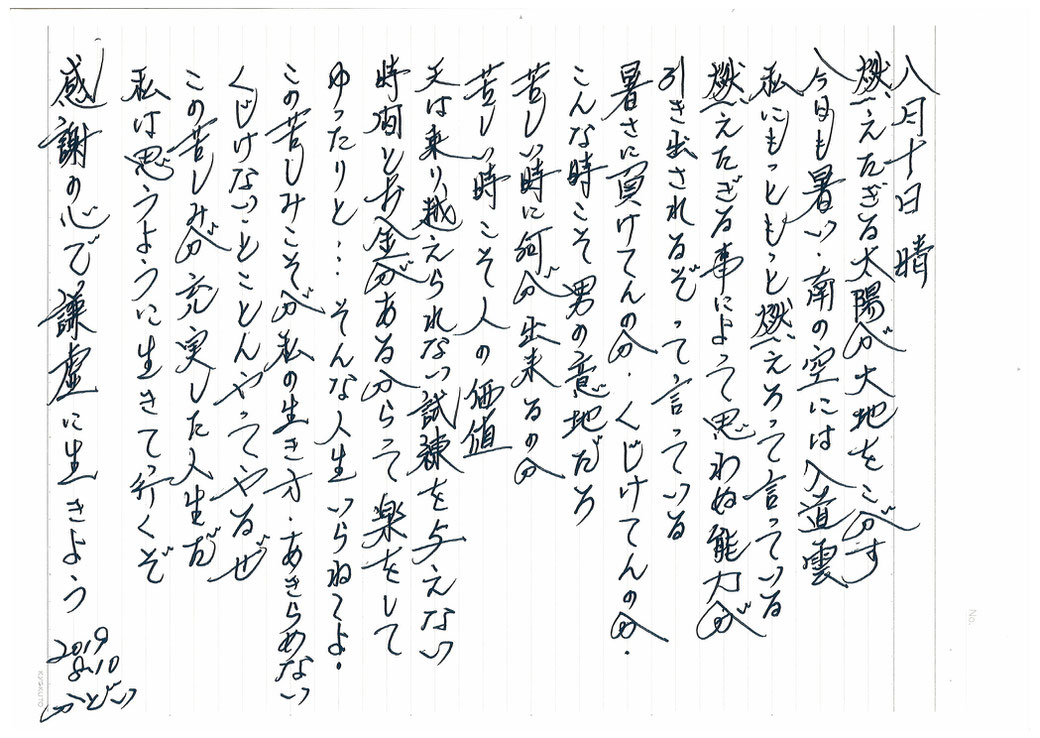 八月十日 晴
燃えたぎる太陽が大地をこがす
今日も暑い・南の空には入道雲
私にもっともっと燃えろって言っている
燃えたぎる事によって思わぬ能力が
引き出されるぞって言っている
暑さに負けてんのか・くじけてんのか・
こんな時こそ男の意地だろ
苦しい時に何が出来るのか
苦しい時こそ人の価値
天は乗り越えられない試練を与えない
時間とお金があるからって楽をして
ゆったりと…そんな人生いらねてよ・
この苦しみこそが私の生き方・あきらめない
くじけないとことんやってやるぜ
この苦しみが充実した人生だ
私は思うように生きて行くぞ
感謝の心で謙虚に生きよう
2019
8.10
かどい
No.
KYOKUTO